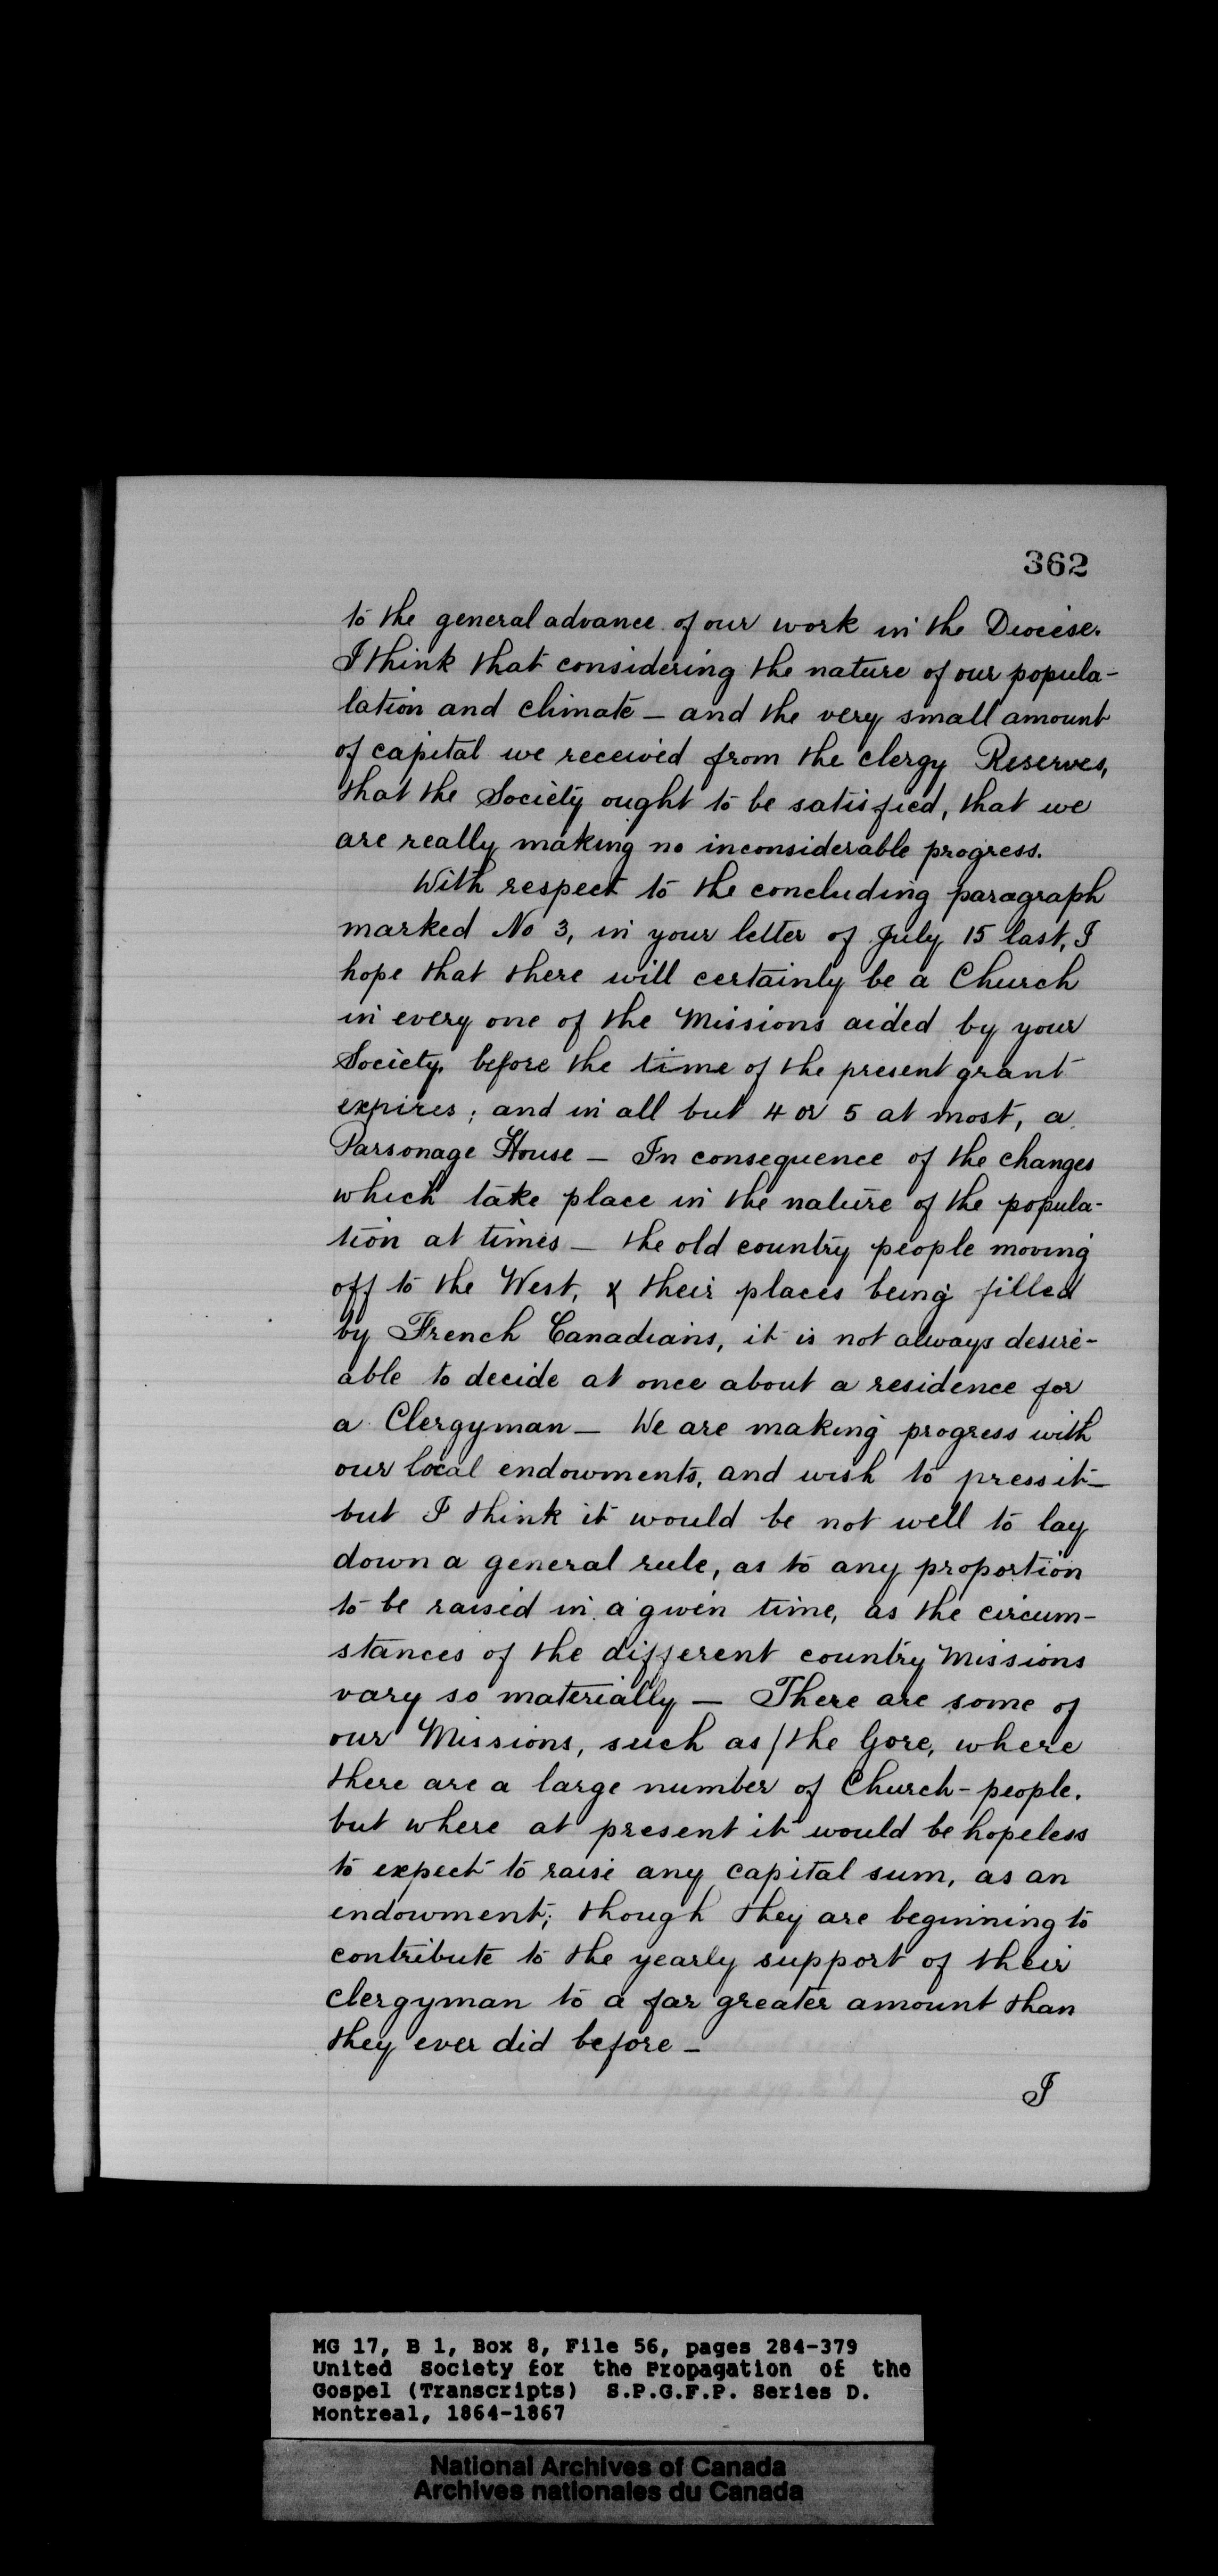 362
to the general advance of our work in the Diocese.
I think that considering the nature of our popula-
lation and climate — and the very small amount
of capital we received from the clergy Reserves,
that the Society ought to be satisfied, that we
are really making no inconsiderable progress.
With respect to the concluding paragraph
marked No 3, in your letter of July 15 last, I
hope that there will certainly be a Church
in every one of the Missions aided by your
Society before the time of the present grant
expires; and in all but 4 or 5 at most, a
Parsonage House — In consequence of the changes
which take place in the nature of the popula-
tion at times — the old country people moving
off to the West, & their places being filled
by French Canadians, it is not always desire-
able to decide at once about a residence for
a Clergyman — We are making progress with
our local endowments, and wish to press it —
but I think it would be not well to lay
down a general rule, as to any proportion
to be raised in a given time, as the circum-
stances of the different country Missions
vary so materially — There are some of
our Missions, such as / the Gore, where
there are a large number of Church-people.
but where at present it would be hopeless
to expect to raise any capital sum, as an
endowment; though they are beginning to
contribute to the yearly support of their
clergyman to a far greater amount than
they ever did before —
I
MG 17, B 1, Box 8, File 56, pages 284-379
United Society for the Propagation of the
Gospel (Transcripts) S.P.G.F.P. Series D.
Montreal, 1864-1867
National Archives of Canada
Archives nationales du Canada